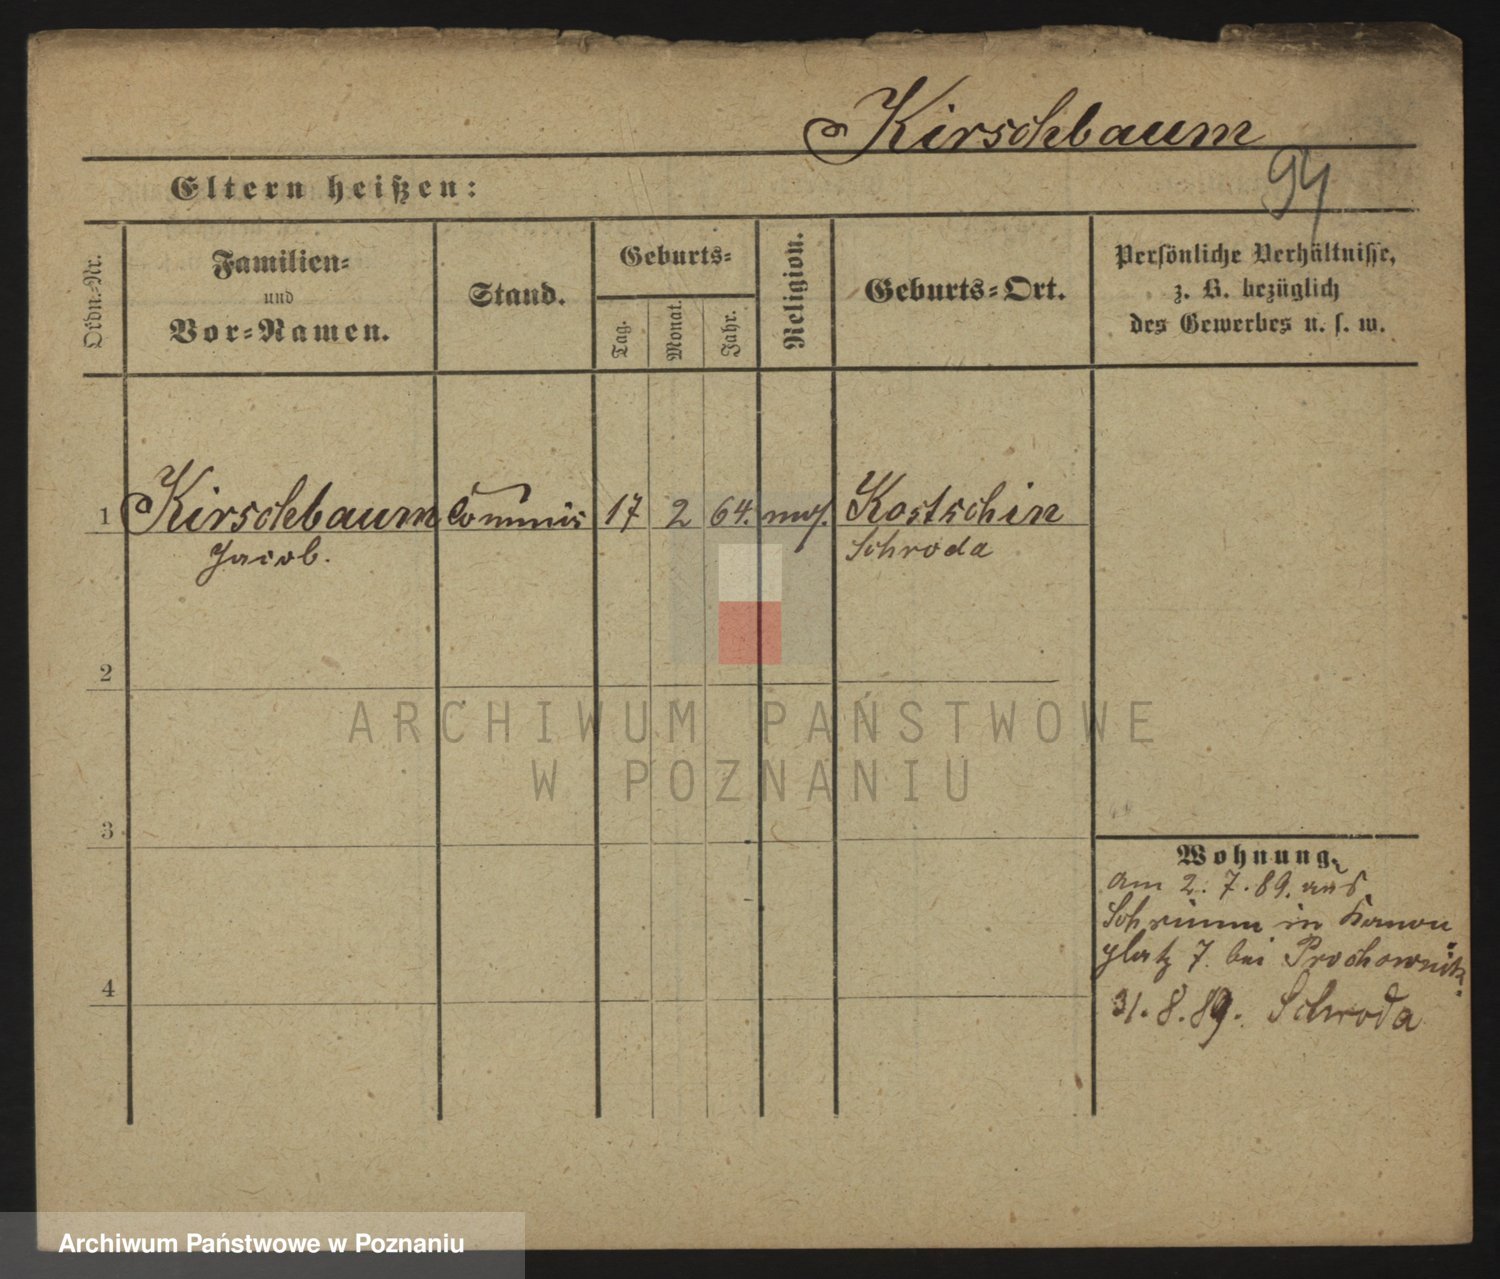 Kirschbaum
94
Eltern heißen:
Ordn.-Nr.
Familien-
und
Vor-Namen.
Stand.
Geburts-
Tag.
Monat.
Jahr.
Religion.
Geburts-Ort.
Persönliche Verhältnisse,
z. B. bezüglich
des Gewerbes u. s. w.
1 Kirschbaum Commis 17 2 64. mos. Kostschin
Jacob. Schroda
2
ARCHIWUM PAŃSTWOWE
W POZNANIU
3
Wohnung.
am 2. 7. 89. aus
Schrimm in Kanon
platz 7. bei Prochownik.
4
31. 8. 89. Schroda
Archiwum Państwowe w Poznaniu